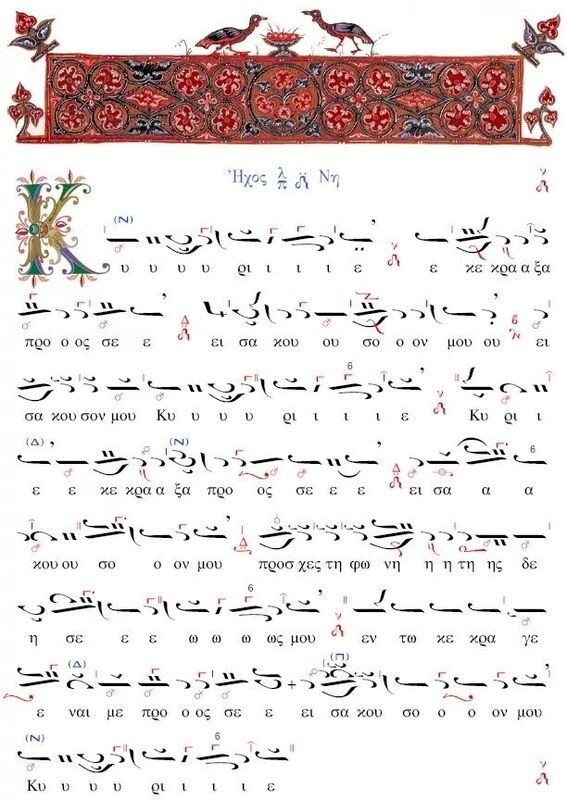 Ἦχος λ π Νη
(Ν)
Κ υ υ υ υ ρι ι ι ε ε κε κρα α ξα
προ ο ος σε ε ει σα κου ου σο ο ον μου ου ει
σα κου σον μου Κυ υ υ υ ρι ι ι ι ε Κυ ρι ι
(Δ) (Ν)
ε ε κε κρα α ξα προ ο ος σε ε ε ει σα α α
κου ου σο ο ον μου προσ χες τη φω νη η η τη ης δε
η σε ε ε ω ω ω ως μου εν τω κε κρα γε
(Δ) (Π)
ε ναι με προ ο ος σε ε ει σα κου σο ο ο ον μου
(Ν)
Κυ υ υ υ ρι ι ι ε